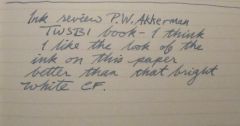 Ink review P.W. Akkerman
TWSBI book - I think
I like the look of the
ink on this paper
better than that bright
white CF.